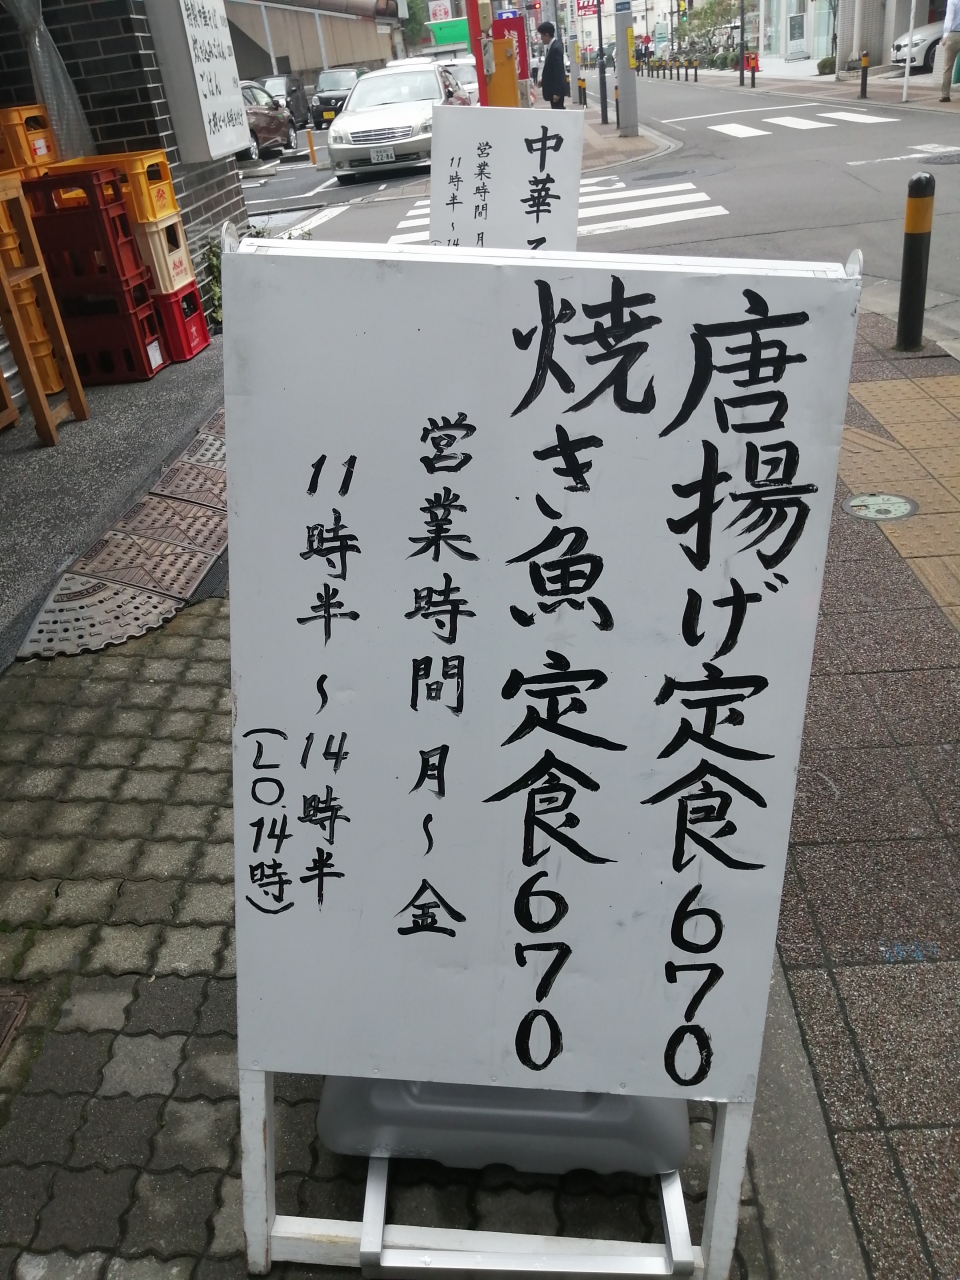 唐揚げ定食670
焼き魚定食670
営業時間 月～金
11時半～14時半
(L.O.14時)
中華
営業時間 月
11時半～14
ごはん
22-84